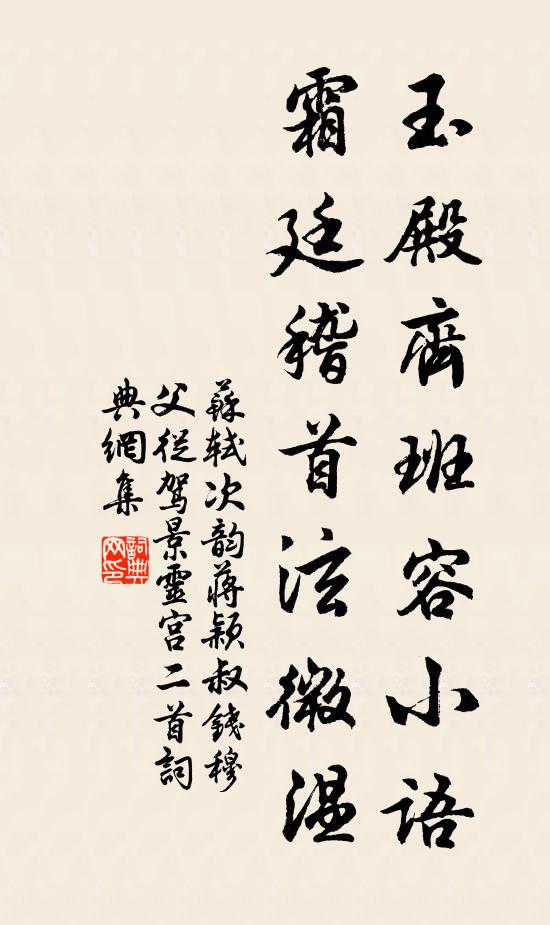 玉殿齊班容小語
霜廷稽首泫微温
蘇軾次韵蔣穎叔錢穆
父從駕景靈宮二首詞
典網集
詞典
网印